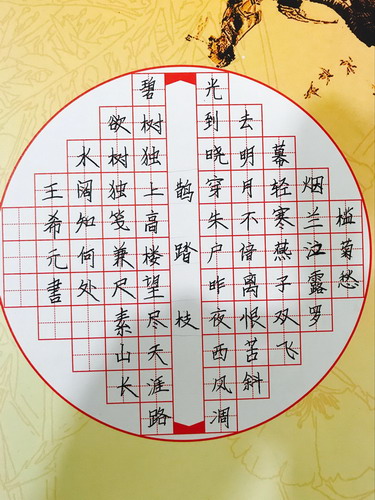 槛菊愁
烟兰泣露罗
幕轻寒燕子双飞
去明月不谙离恨苦斜
光到晓穿朱户昨夜西风凋
鹊踏枝
碧树独上高楼望尽天涯路
欲树独笺兼尺素山长
水阔知何处
王希元书